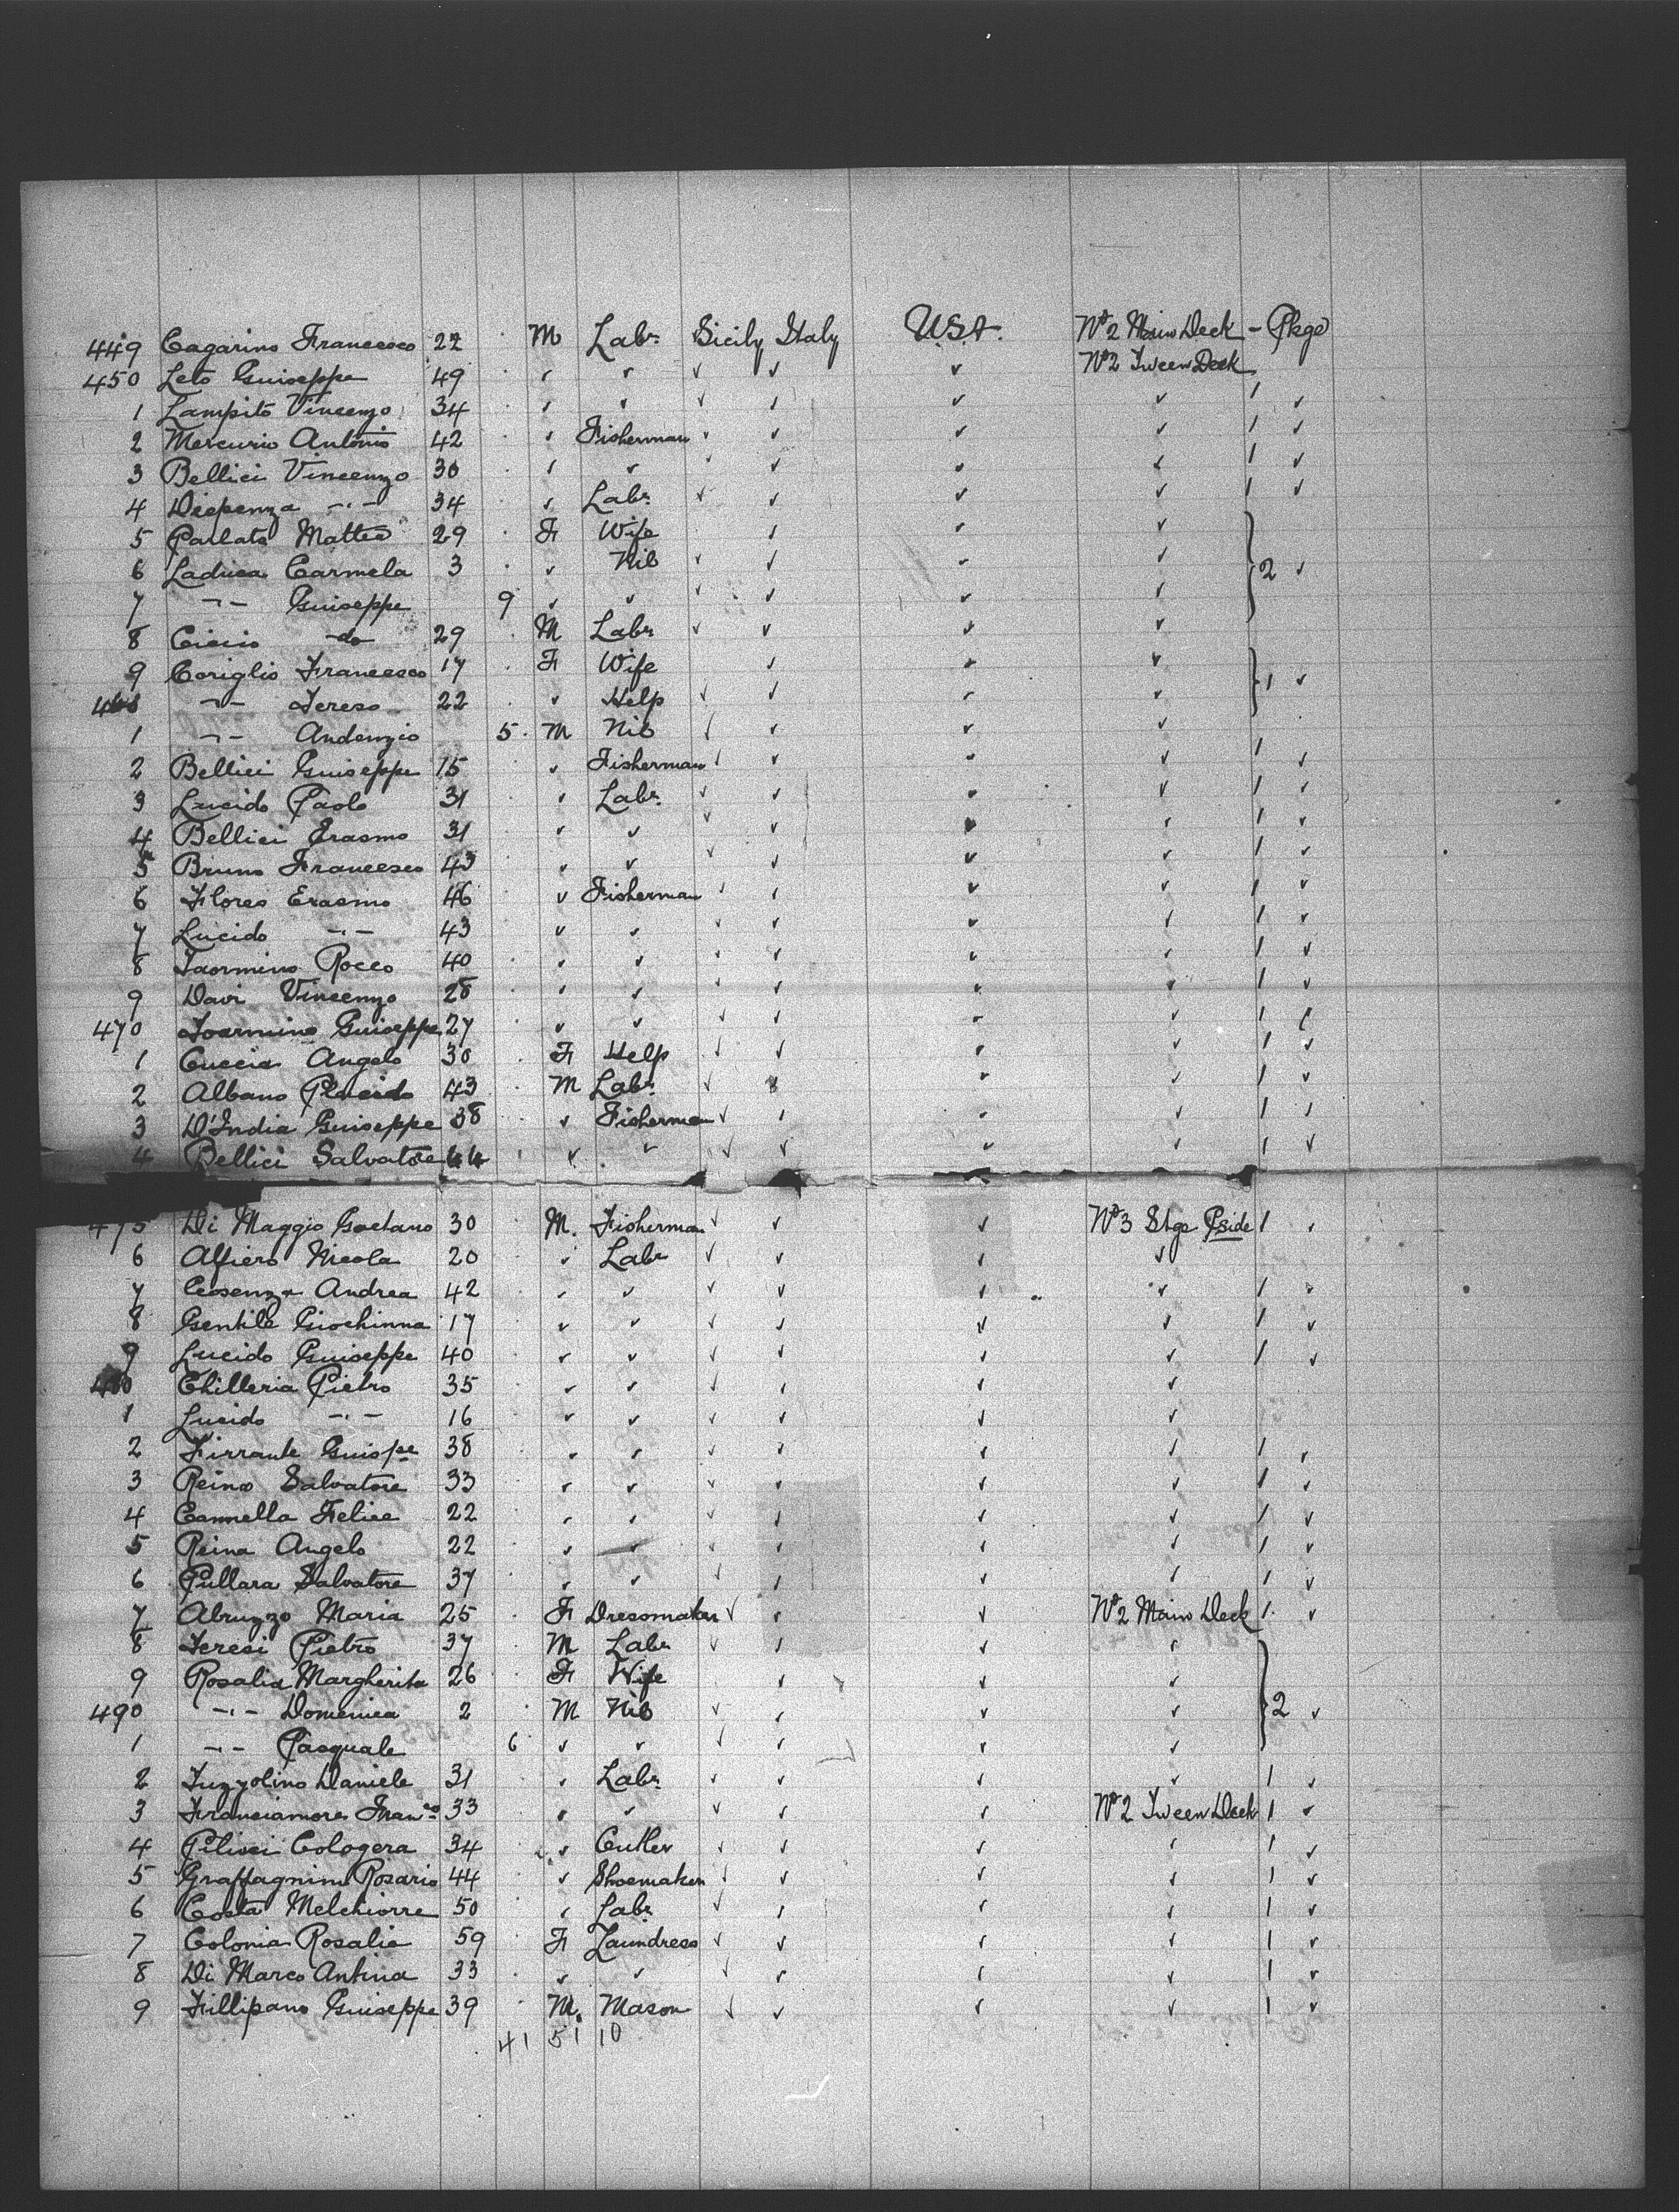 449 Cagarino Francesco 22 M Labr Sicily Italy U.S.A. No 2 Main Deck - Pkge
450 Leto Guiseppe 49 " " " " " No 2 Tween Deck
1 Lampito Vincenzo 34 " " " " " " 1 "
2 Mercurio Antonio 42 " Fisherman " " " " 1 "
3 Bellici Vincenzo 30 " " " " " " 1 "
4 Diepenza -"- 34 " Labr " " " " 1 "
5 Parlata Mattea 29 F Wife " " "
6 Laduca Carmela 3 " Nil " " " " 2 "
7 -"- Guiseppe 9 " " " " " "
8 Ciccio -do- 29 M Labr " " " "
9 Coriglio Francesco 17 F Wife " " "
Tereso 22 " Help " " " " 1 "
1 -"- Andenzio 5 M Nil " " " "
2 Bellici Guiseppe 15 " Fisherman " " " " 1 "
3 Lucido Paolo 31 " Labr " " " " 1 "
4 Bellici Erasmo 31 " " " " " " 1 "
5 Bruno Francesco 43 " " " " " " 1 "
6 Flores Erasmo 46 " Fisherman " " " " 1 "
7 Lucido -"- 43 " " " " " " 1 "
8 Taormino Rocco 40 " " " " " " 1 "
9 Davi Vincenzo 28 " " " " " " 1 "
470 Toarmino Guiseppe 27 " " " " " " 1 "
1 Cuccia Angelo 30 F Help " " " " 1 "
2 Albano Placido 43 M Labr " " " " 1 "
3 D'India Guiseppe 38 " Fisherman " " " " 1 "
4 Bellici Salvatore 44 " " " " " " 1 "
475 Di Maggio Gaetano 30 M. Fisherman " " " No 3 Stge Pside 1 "
6 Alfiero Nicola 20 " Labr " " " "
7 Cosenza Andrea 42 " " " " " " 1 "
8 Gentile Giochinna 17 " " " " " " 1 "
9 Lucido Guiseppe 40 " " " " " " 1 "
480 Chilleria Pietro 35 " " " " " "
1 Lucido -"- 16 " " " " " "
2 Firrante Guispe 38 " " " " " " 1 "
3 Reino Salvatore 33 " " " " " " 1 "
4 Cannella Felice 22 " " " " " " 1 "
5 Reina Angelo 22 " " " " " " 1 "
6 Pullara Salvatore 37 " " " " " " 1 "
7 Abruzzo Maria 25 F Dressmaker " " " No 2 Main Deck 1 "
8 Teresi Pietro 37 M Labr " " " "
9 Rosalia Margherita 26 F Wife " " "
490 -"- Domenica 2 M Nil " " " " 2 "
1 -"- Pasquale 6 " " " " " "
2 Iuzzolino Daniele 31 " Labr " " " " 1 "
3 Franciamore Franco 33 " " " " " No 2 Tween Deck 1 "
4 Pilivci Cologera 34 " Cutler " " " " 1 "
5 Graffagnino Rosario 44 " Shoemaker " " " " 1 "
6 Costa Melchiorre 50 " Labr " " " " 1 "
7 Colonia Rosalia 59 F Laundress " " " " 1 "
8 Di Marco Antina 33 " " " " " " 1 "
9 Fillipano Guiseppe 39 M. Mason " " " " 1 "
41 51 10